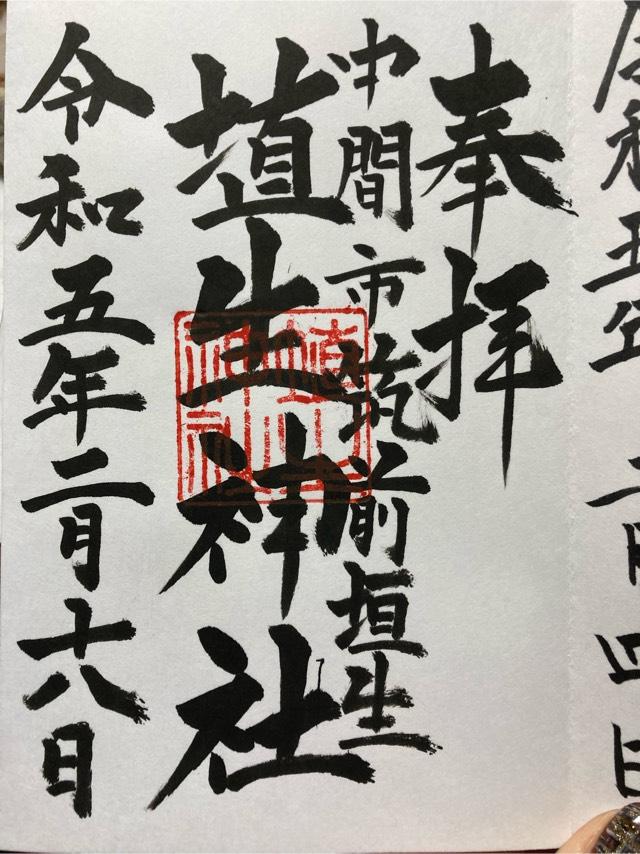 令和五年二月四日
奉拝
中間市筑前垣生
埴生神社
令和五年二月十八日